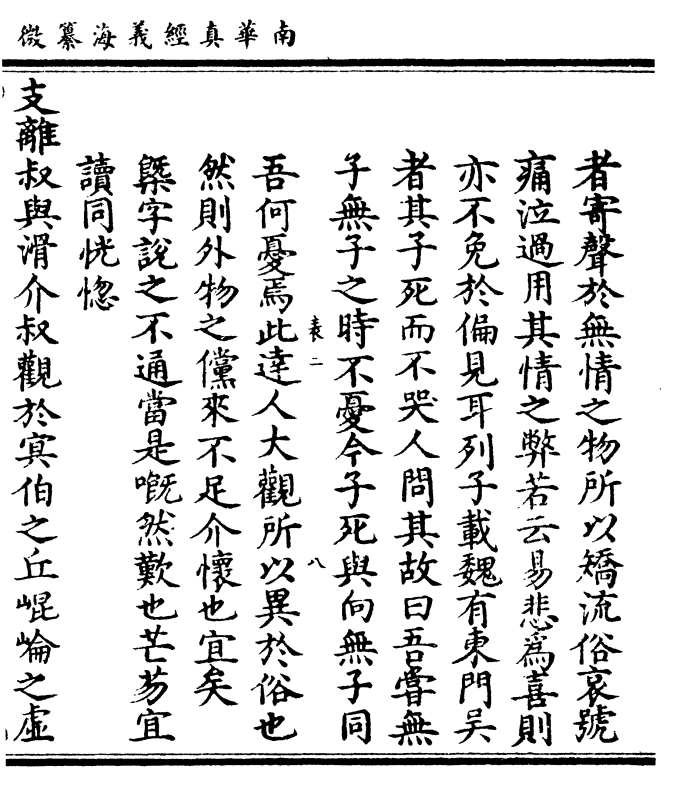 南華真經義海纂微
者寄聲於無情之物所以矯流俗哀號
痛泣過用其情之弊若云易悲爲喜則
亦不免於偏見耳列子載魏有東門吴
者其子死而不哭人問其故曰吾嘗無
子無子之時不憂今子死與向無子同
袁二
八
吾何憂焉此達人大觀所以異於俗也
然則外物之儻來不足介懷也宜矣
槩字説之不通當是嘅然歎也芒芴宜
讀同恍惚
支離叔與滑介叔觀於㝠伯之丘崐崘之虚